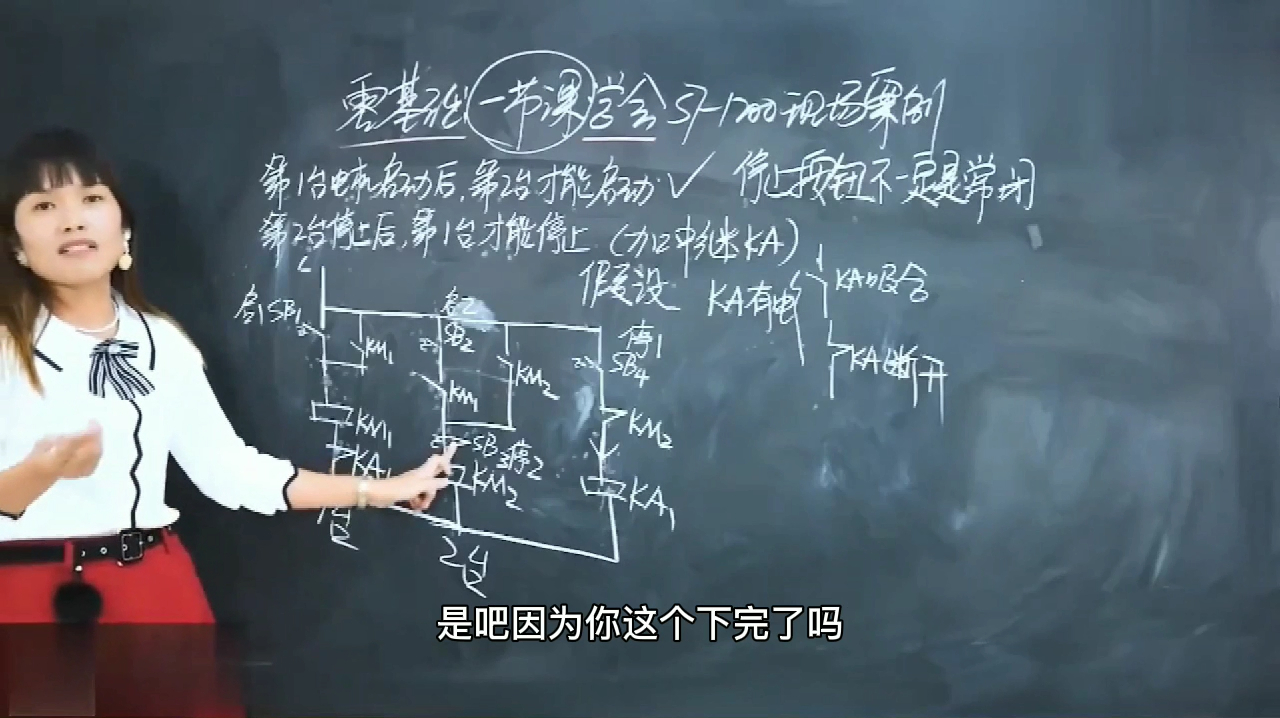 零基础一节课学会S7-1200现场案例
第1台电机启动后,第2台才能启动✓ 停止按钮不一定是常闭
第2台停止后,第1台才能停止(加中继KA)
假设 KA有电 KA吸合
KA断开
L
启1SB1
启2
SB2
停1
SB4
KM1
KM2
KM1
KM2
KM1
SB3停2
KA1
KM2
KA1
是吧因为你这个下完了吗